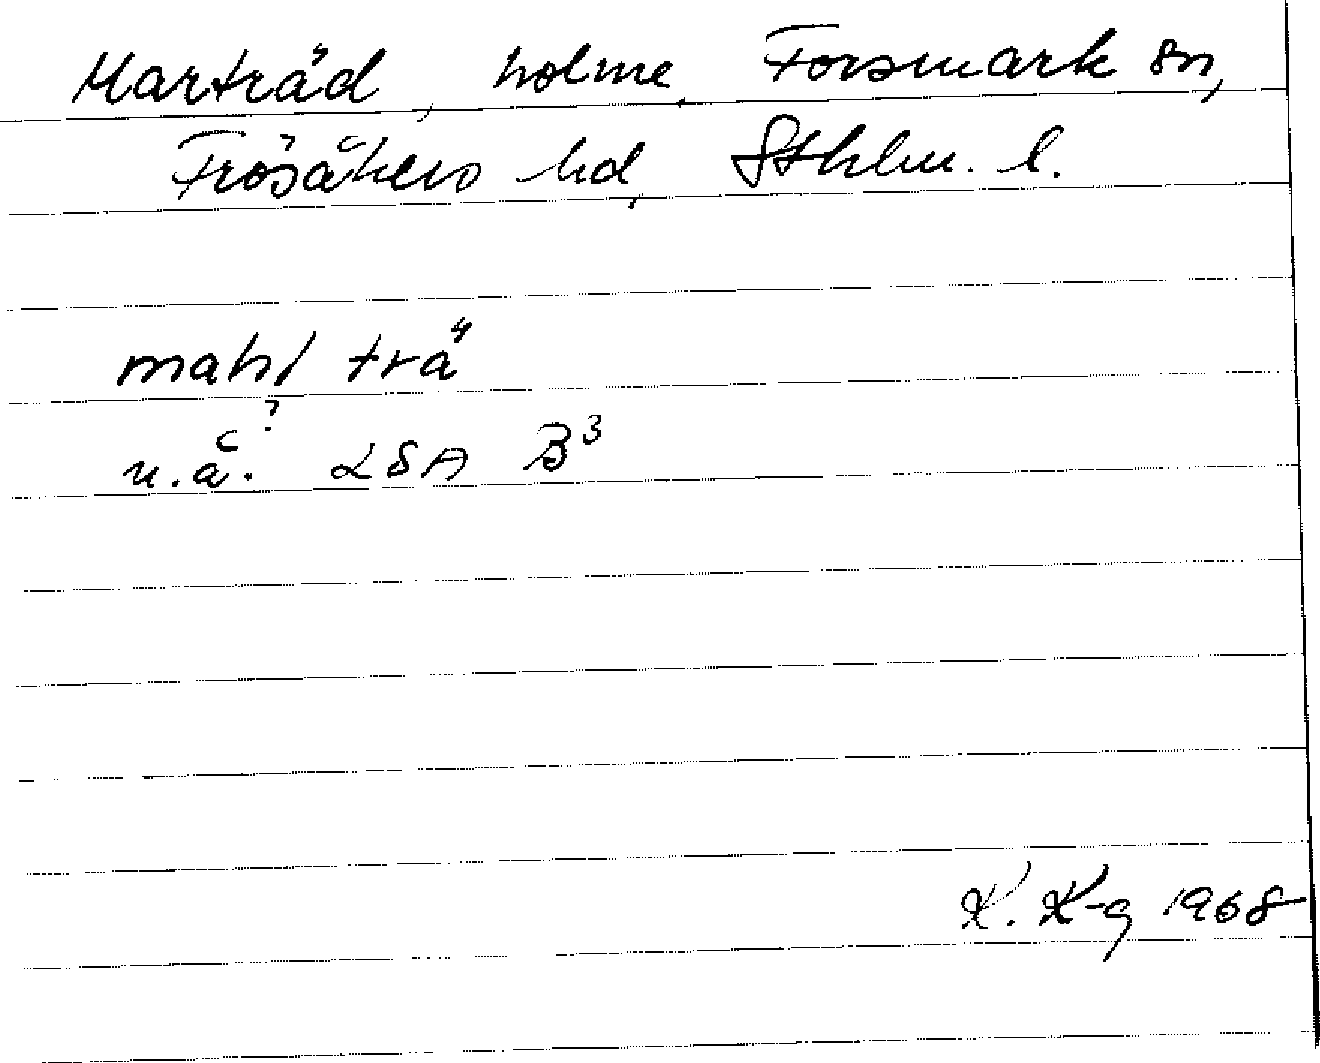 Marträd, holme, Forsmark sn,
Frösåkers hd, Sthlm. l.
mahl trä
u.å.? LSA B³
K. K-g 1968